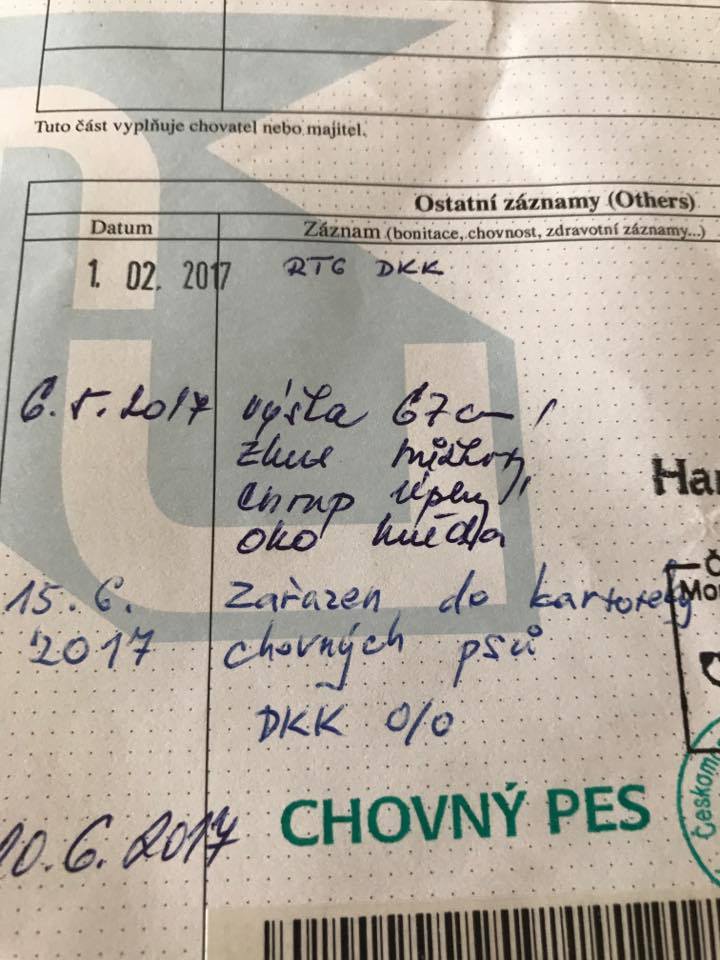 Tuto část vyplňuje chovatel nebo majitel.
Ostatní záznamy (Others)
Datum Záznam (bonitace, chovnost, zdravotní záznamy...)
1. 02. 2017 RTG DKK
6. 5. 2017 výška 67 cm
zkus
chrup úplný
oko hnědá
15. 6. zařazen do kartoteky
2017 chovných psů
DKK 0/0
CHOVNÝ PES
10. 6. 2017
Har
Mo
Českomo